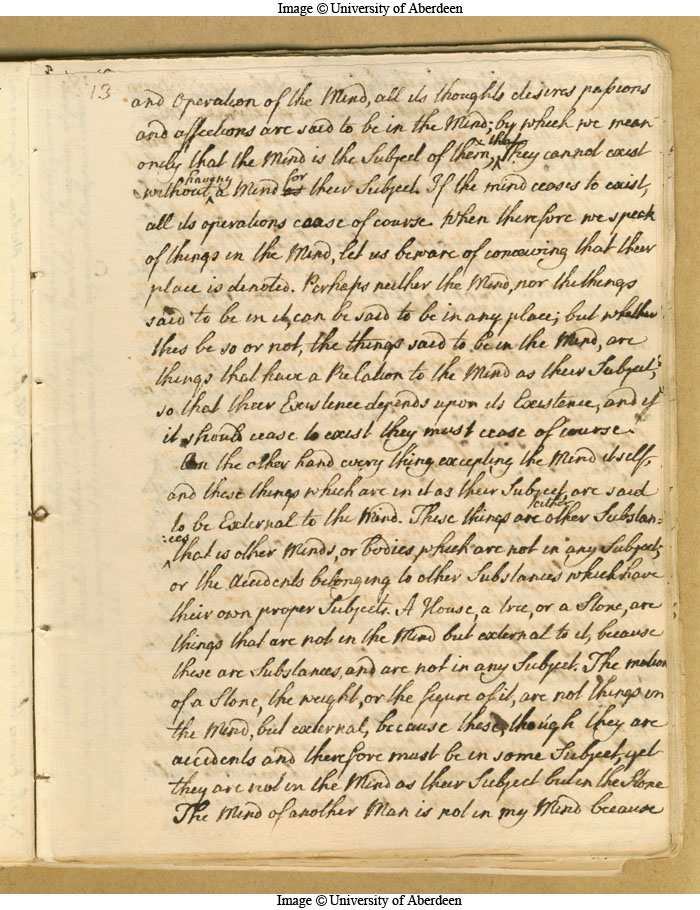 Image © University of Aberdeen
13
and Operation of the Mind, all its thoughts desires passions
and affections are said to be in the Mind; by which we mean
only that the Mind is the Subject of them, & that They cannot exist
without having a Mind for their Subject. If the mind ceases to exist,
all its operations cease of course. When therefore we speak
of things in the Mind, let us beware of conceiving that their
place is denoted. Perhaps neither the Mind, nor the things
said to be in it, can be said to be in any place; but whether
this be so or not, the things said to be in the Mind, are
things that have a Relation to the Mind as their Subject,
so that their Existence depends upon its Existence, and if
it should cease to exist they must cease of course.
On the other hand every thing excepting the Mind itself,
and these things which are in it as their Subject, are said
to be External to the Mind. These things are either other Substan-
:ces that is other Minds, or bodies, which are not in any Subject;
or the Accidents belonging to other Substances which have
their own proper Subjects. A House, a tree, or a Stone, are
things that are not in the Mind but external to it, because
these are Substances, and are not in any Subject. The motion
of a Stone, the weight, or the figure of it, are not things in
the Mind, but external, because these, though they are
accidents and therefore must be in some Subject, yet
they are not in the Mind as their Subject but in the Stone
The Mind of another Man is not in my Mind because
Image © University of Aberdeen